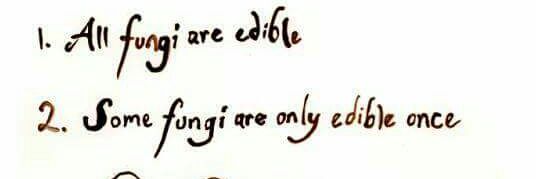 1. All fungi are edible
2. Some fungi are only edible once